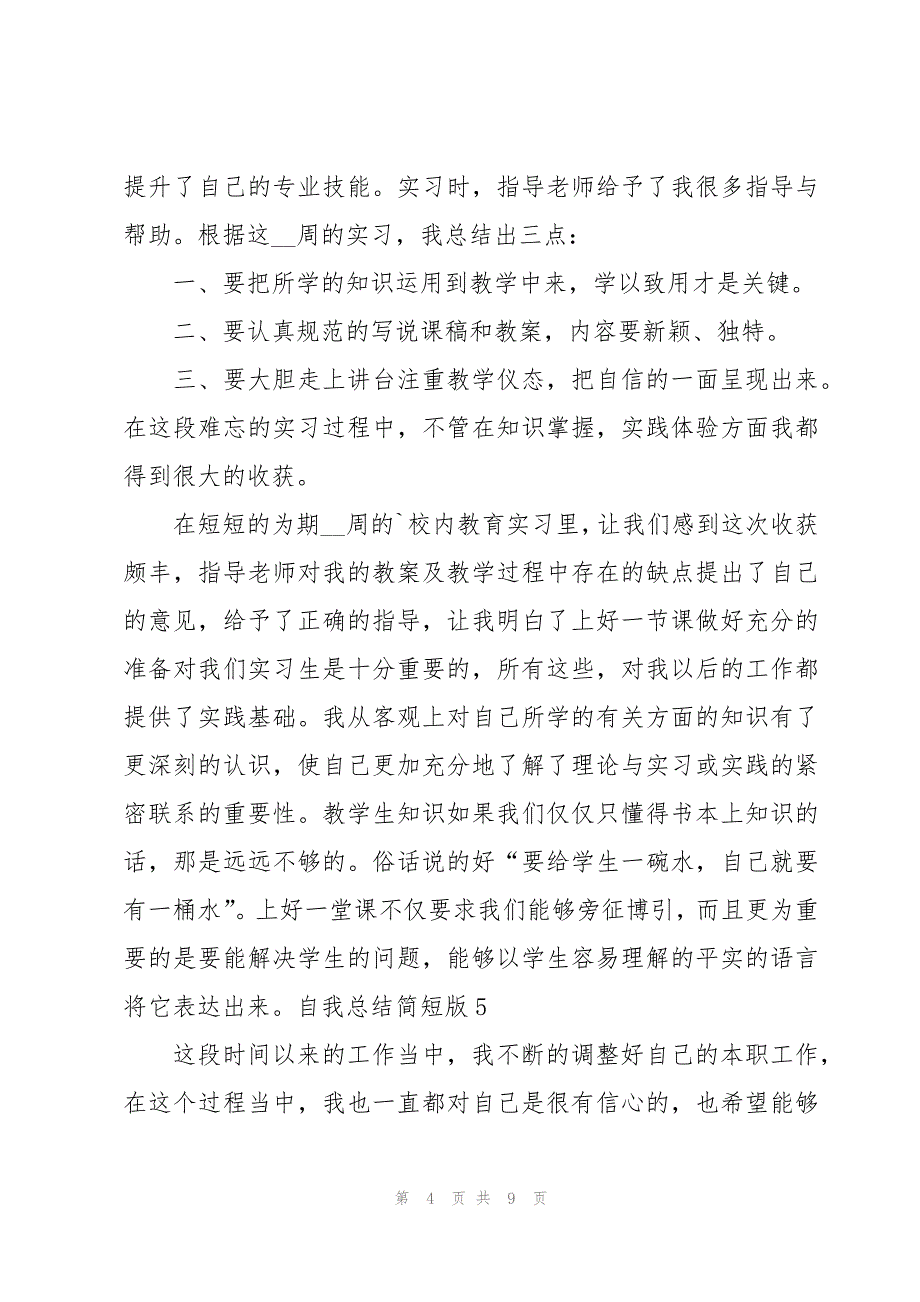 提升了自己的专业技能。实习时，指导老师给予了我很多指导与
帮助。根据这__周的实习，我总结出三点：
一、要把所学的知识运用到教学中来，学以致用才是关键。
二、要认真规范的写说课稿和教案，内容要新颖、独特。
三、要大胆走上讲台注重教学仪态，把自信的一面呈现出来。
在这段难忘的实习过程中，不管在知识掌握，实践体验方面我都
得到很大的收获。
在短短的为期__周的`校内教育实习里，让我们感到这次收获
颇丰，指导老师对我的教案及教学过程中存在的缺点提出了自己
的意见，给予了正确的指导，让我明白了上好一节课做好充分的
准备对我们实习生是十分重要的，所有这些，对我以后的工作都
提供了实践基础。我从客观上对自己所学的有关方面的知识有了
更深刻的认识，使自己更加充分地了解了理论与实习或实践的紧
密联系的重要性。教学生知识如果我们仅仅只懂得书本上知识的
话，那是远远不够的。俗话说的好“要给学生一碗水，自己就要
有一桶水”。上好一堂课不仅要求我们能够旁征博引，而且更为重
要的是要能解决学生的问题，能够以学生容易理解的平实的语言
将它表达出来。自我总结简短版5
这段时间以来的工作当中，我不断的调整好自己的本职工作，
在这个过程当中，我也一直都对自己是很有信心的，也希望能够
第 4 页 共 9 页